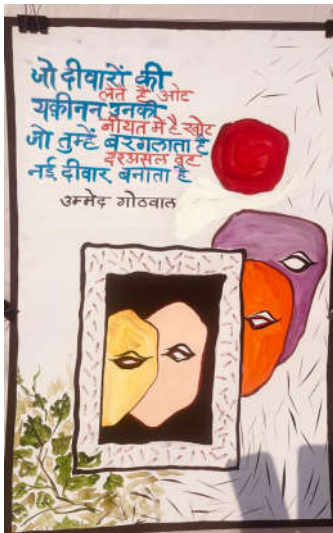 जो दीवारों की
लेते है ओट
यकीनन उनकी
नीयत मे है खोट
जो तुम्हें बरगलाता है
दरअसल वह
नई दीवार बनाता है
उम्मेद गोठवाल